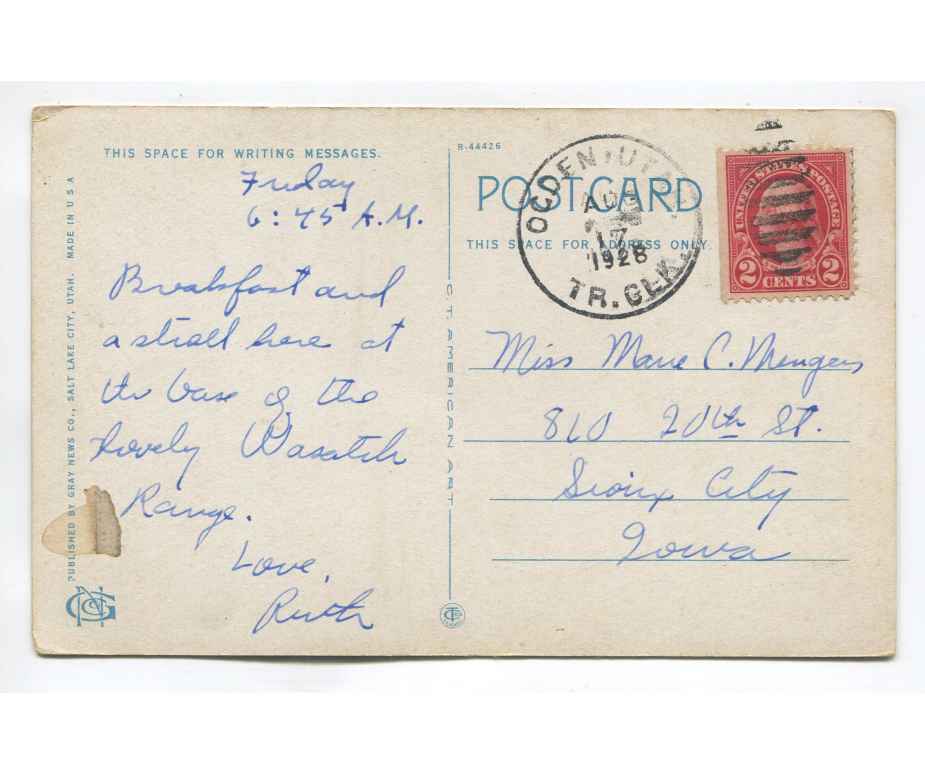 THIS SPACE FOR WRITING MESSAGES.
Friday
6:45 A.M.
Breakfast and
a stroll here at
the base of the
lovely Wasatch
Range.
Love,
Ruth
PUBLISHED BY GRAY NEWS CO., SALT LAKE CITY, UTAH. MADE IN U S A
C. T. AMERICAN ART
R-44426
POST CARD
THIS SPACE FOR ADDRESS ONLY.
OGDEN, UTAH
AUG
17
1928
TR. CLK.
UNITED STATES POSTAGE
2 CENTS 2
Miss Marie C. Mengers
810 20th St.
Sioux City
Iowa